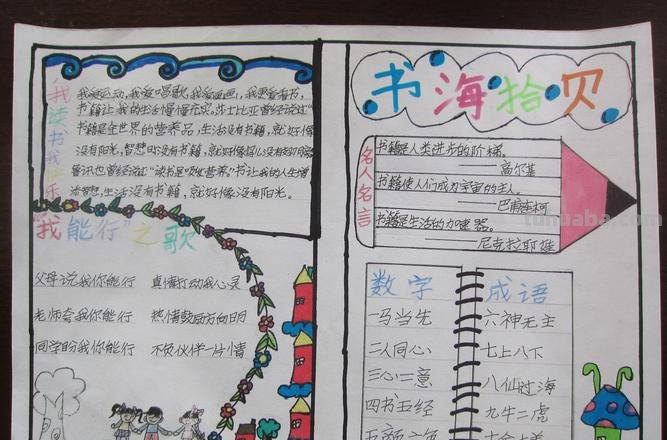 我读书我快乐
我爱运动,我爱唱歌,我爱画画,我更爱看书,
书籍让我的生活慢慢充实。莎士比亚曾经说过“
书籍是全世界的营养品,生活没有书籍,就好像
没有阳光,智慧
没有书籍,就好像
鲁讯也曾经说过“
”书让我的人生增
生活没有书籍,就好像没有阳光。
“我能行”之歌
父母说我你能行 真情打动我心灵
老师夸我你能行 热情鼓励方向明
同学盼我你能行 不负伙伴一片情
书海拾贝
名人名言
书籍是人类进步的阶梯。
高尔基
书籍使人们成为宇宙的主人。
——巴甫连柯
书籍是生活的加速器。
——尼克拉耶维
数字 成语
一马当先 六神无主
二人同心 七上八下
三心二意 八仙过海
四书五经 九牛二虎
tuhuaba.com